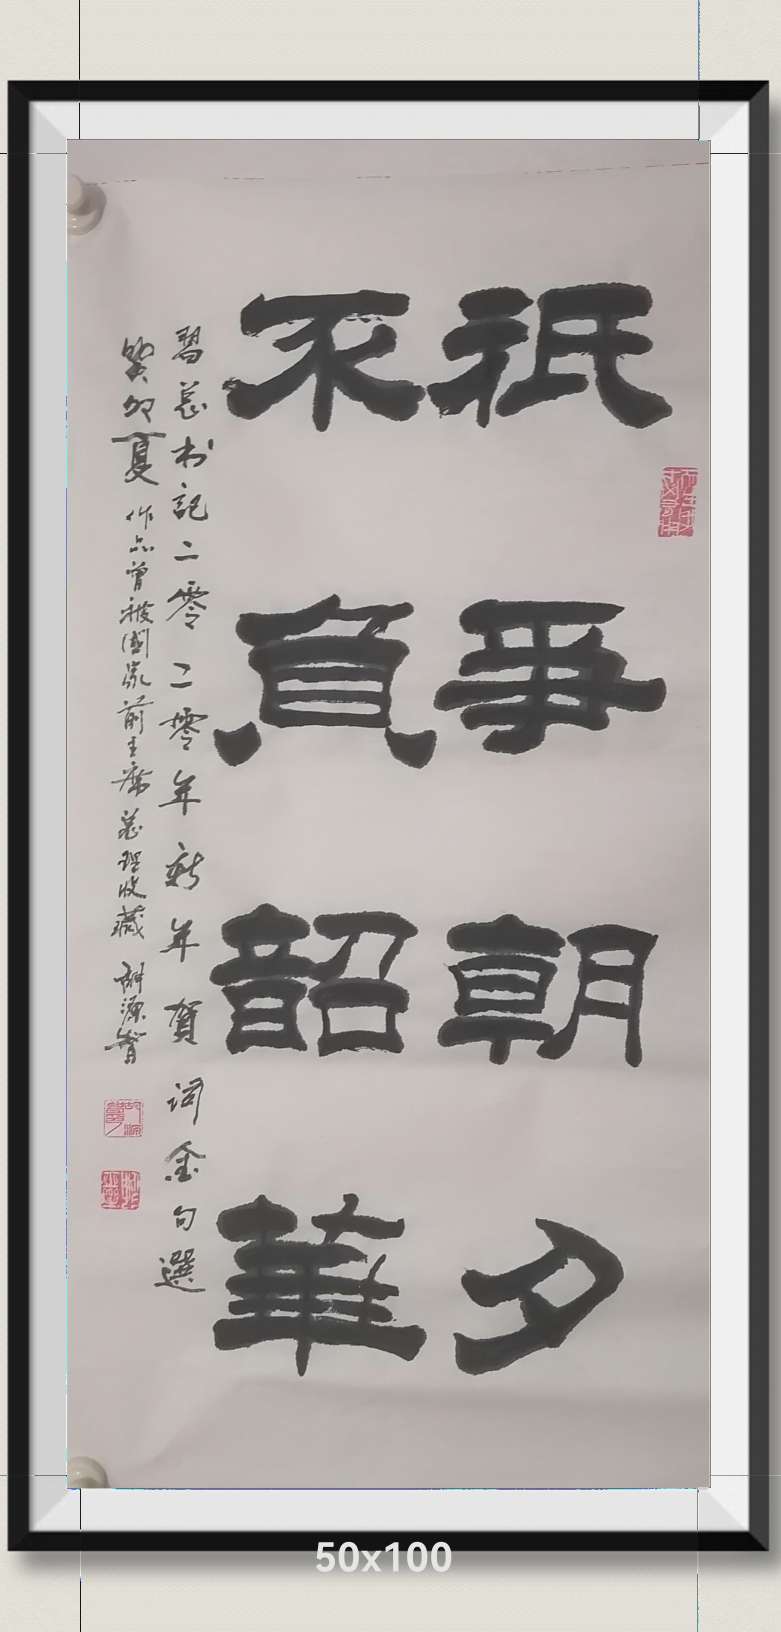 祇爭朝夕
不負韶華
習总书記二零二零年新年賀词金句選
癸卯夏 作品曾被國家前主席总理收藏
50x100